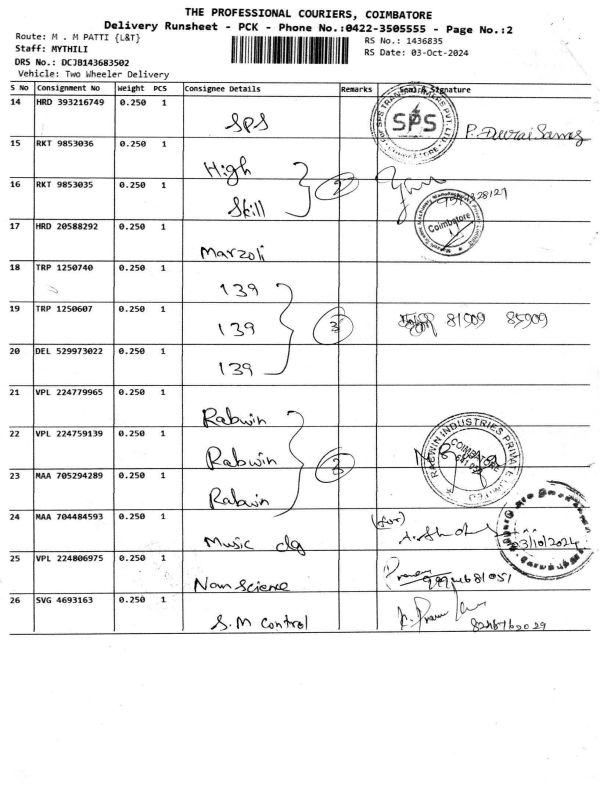 THE PROFESSIONAL COURIERS, COIMBATORE
Delivery Runsheet - PCK - Phone No.:0422-3505555 - Page No.:2
Route: M . M PATTI {L&T}
RS No.: 1436835
Staff: MYTHILI
RS Date: 03-Oct-2024
DRS No.: DCJB143683502
Vehicle: Two Wheeler Delivery
S No Consignment No Weight PCS Consignee Details Remarks Seal & Signature
14 HRD 393216749 0.250 1 SPS
SPS
P. Devrai Samy
15 RKT 9853036 0.250 1 High
2
16 RKT 9853035 0.250 1 Skill
Coimbatore
17 HRD 20588292 0.250 1 Marzoli
18 TRP 1250740 0.250 1 139
19 TRP 1250607 0.250 1 139 3 81909 85909
20 DEL 529973022 0.250 1 139
21 VPL 224779965 0.250 1 Rabwin
22 VPL 224759139 0.250 1 Rabwin 3
RABWIN INDUSTRIES PRIVATE LIMITED
COIMBATORE
23 MAA 705294289 0.250 1 Rabwin
24 MAA 704484593 0.250 1 Music clg
03/10/2024
25 VPL 224806975 0.250 1 Nan Science
26 SVG 4693163 0.250 1 S.M Control